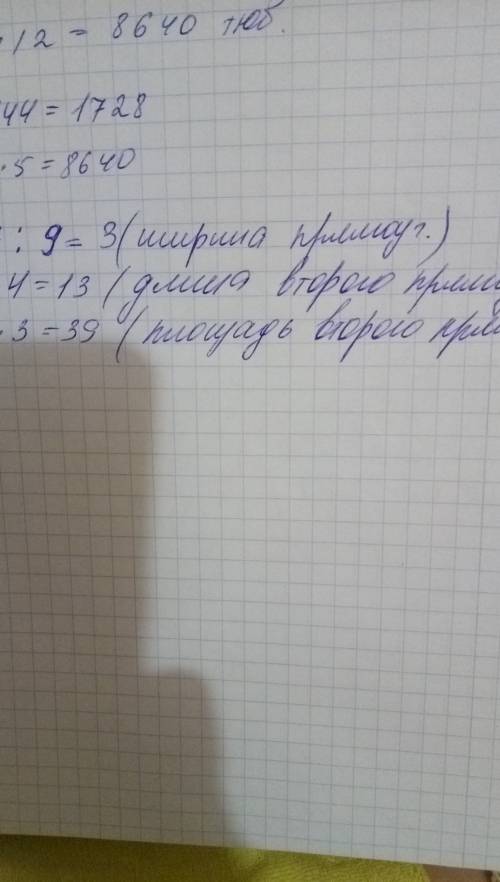 12 = 8640 тюб.
44 = 1728
· 5 = 8640
: 9 = 3 (ширина прямоуг.)
4 = 13 (длина второго прямо
· 3 = 39 (площадь второго прям